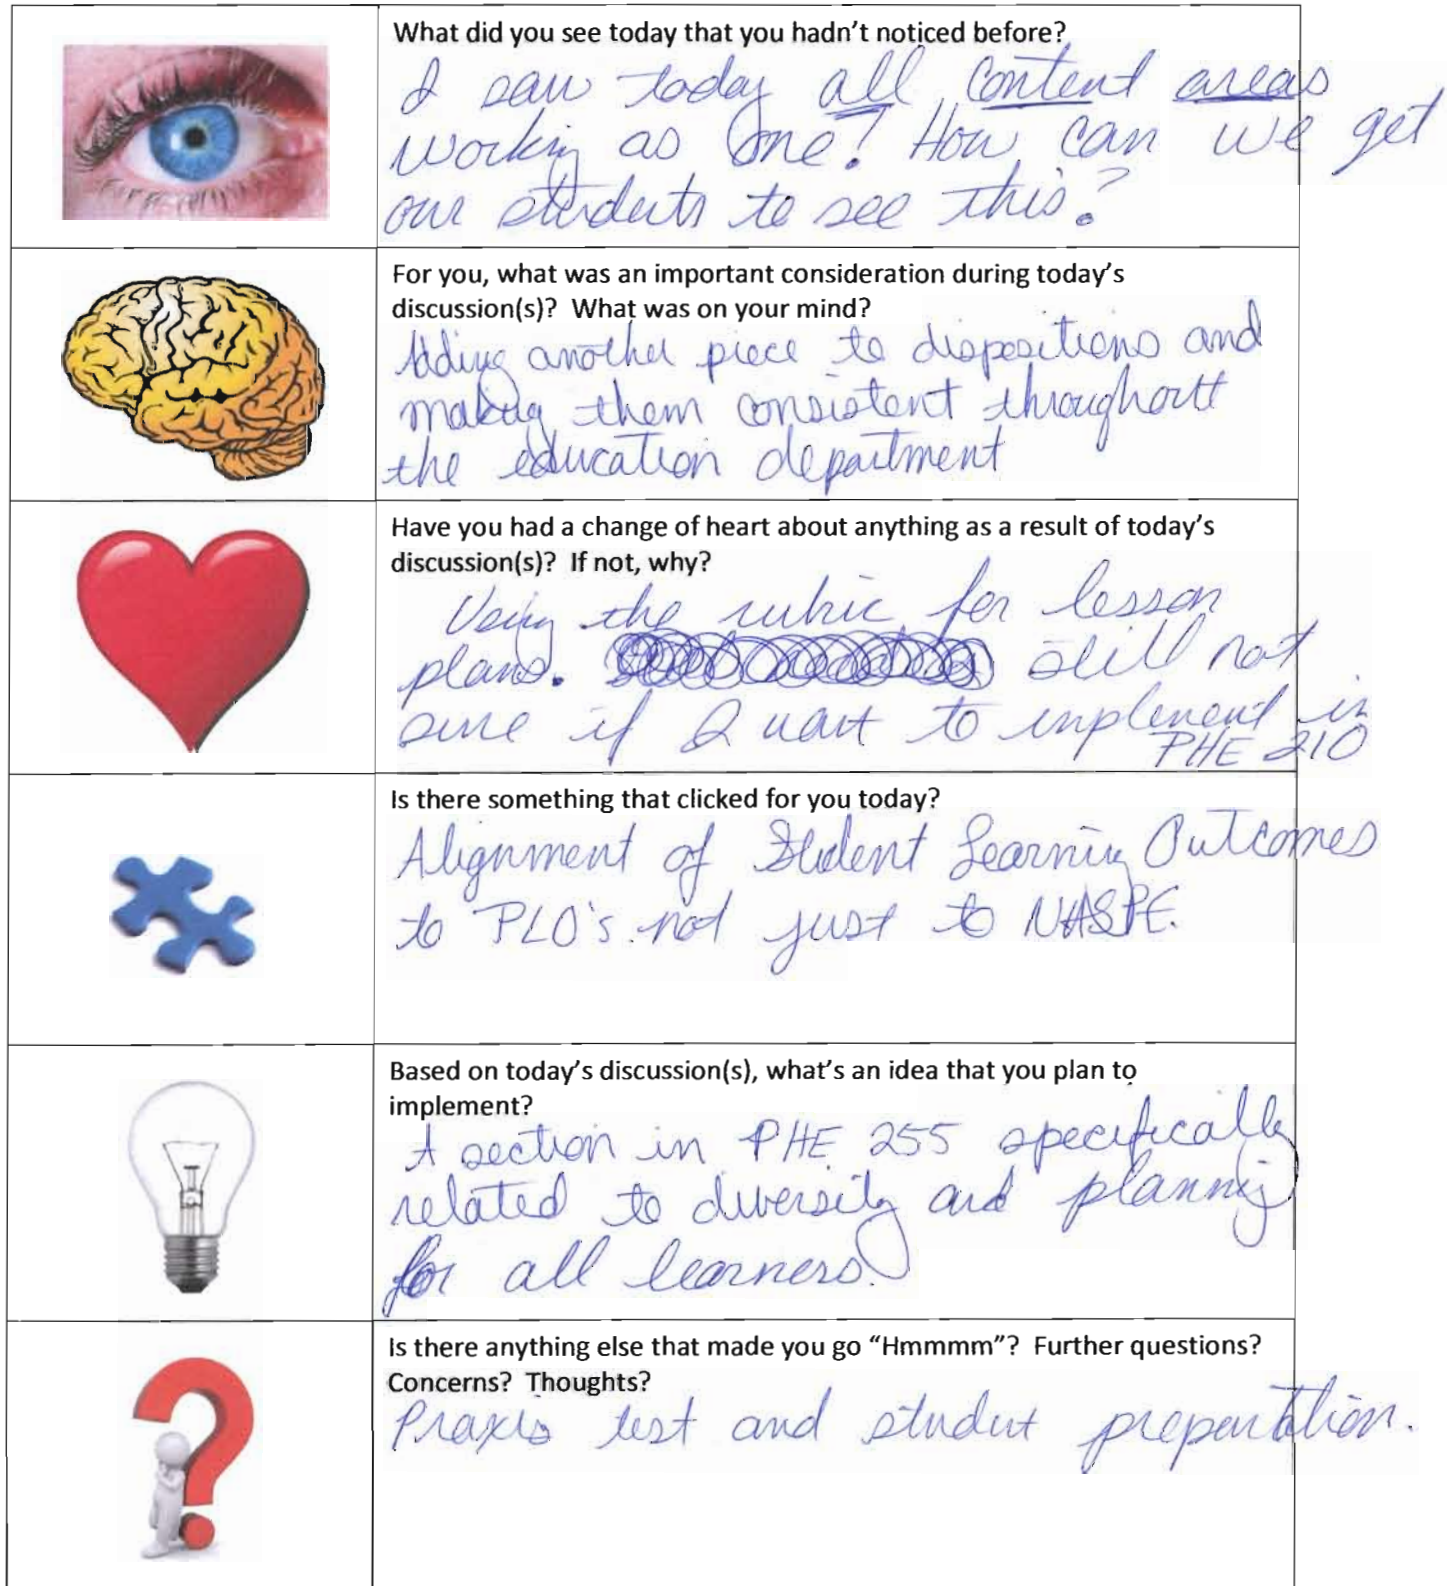 What did you see today that you hadn't noticed before?
I saw today all content areas
working as one! How can we get
our students to see this?
For you, what was an important consideration during today's
discussion(s)? What was on your mind?
Adding another piece to dispositions and
making them consistent throughout
the education department
Have you had a change of heart about anything as a result of today's
discussion(s)? If not, why?
Using the rubric for lesson
plans. still not
sure if I want to implement in
PHE 210
Is there something that clicked for you today?
Alignment of Student Learning Outcomes
to PLO's not just to NASPE.
Based on today's discussion(s), what's an idea that you plan to
implement?
A section in PHE 255 specifically
related to diversity and planning
for all learners.
Is there anything else that made you go "Hmmmm"? Further questions?
Concerns? Thoughts?
Praxis test and student preparation.